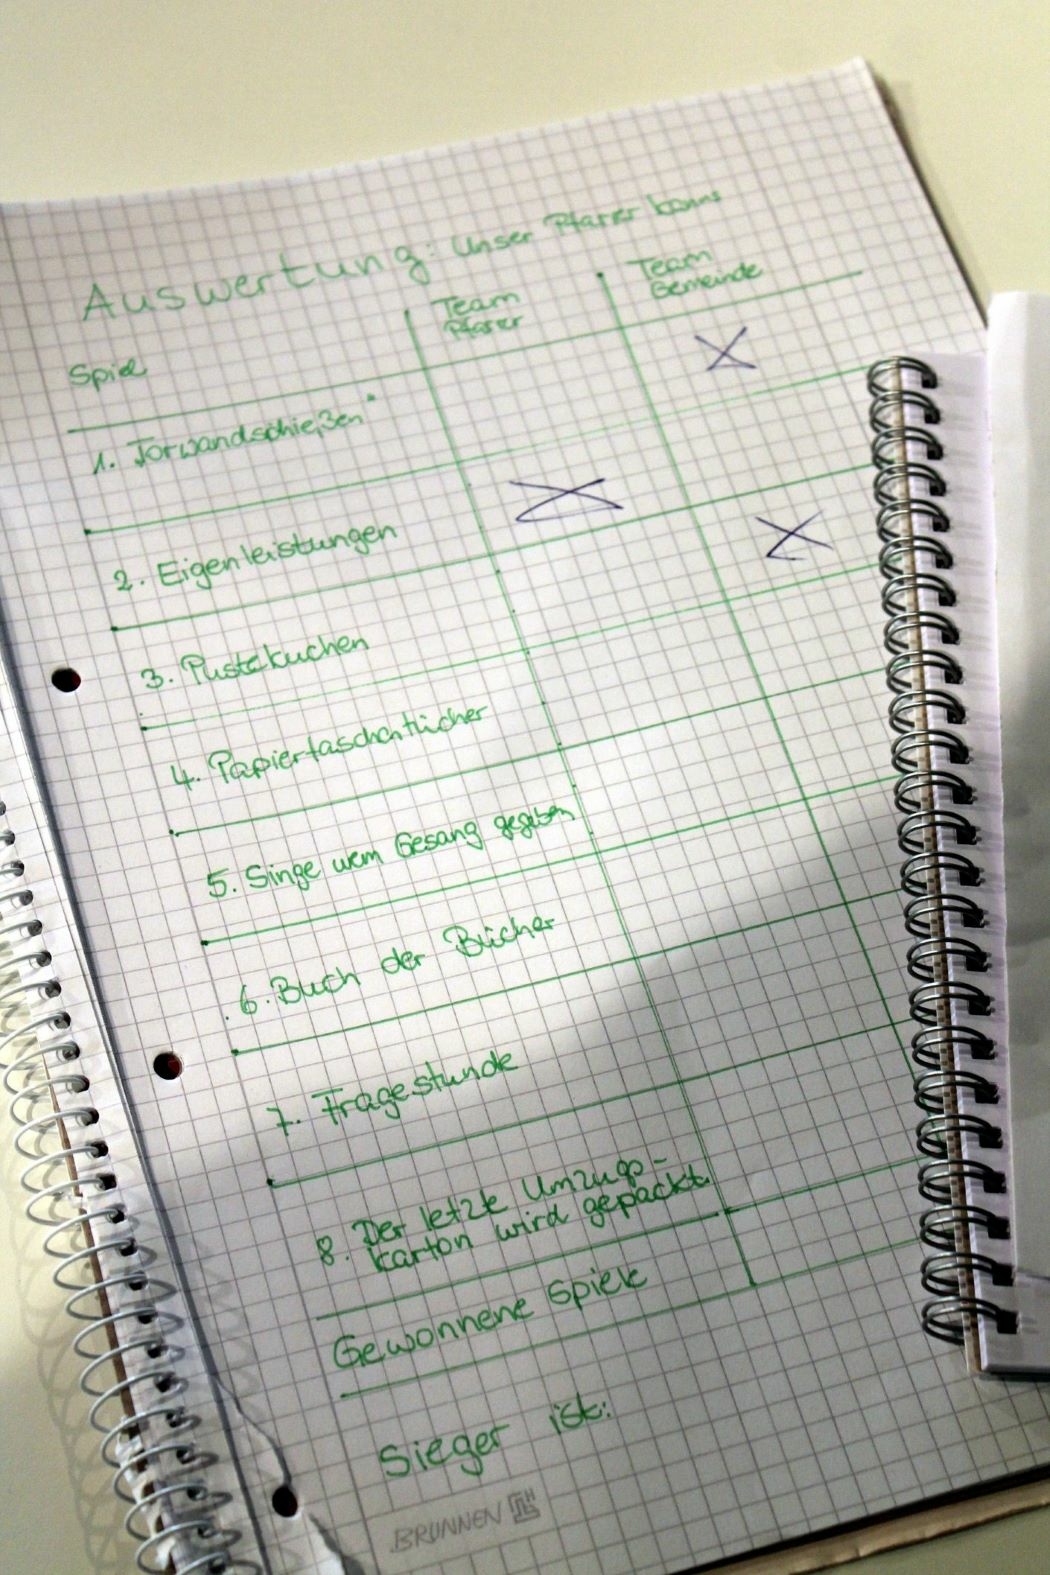 Auswertung: Unser Pfarrer kanns
Spiel
Team
Pfarrer
Team
Gemeinde
1. Torwandschießen
X
2. Eigenleistungen
X
3. Pustekuchen
X
4. Papiertaschentücher
5. Singe wem Gesang gegeben
6. Buch der Bücher
7. Fragestunde
8. Der letzte Umzugs-
karton wird gepackt.
Gewonnene Spiele
Sieger ist:
BRUNNEN